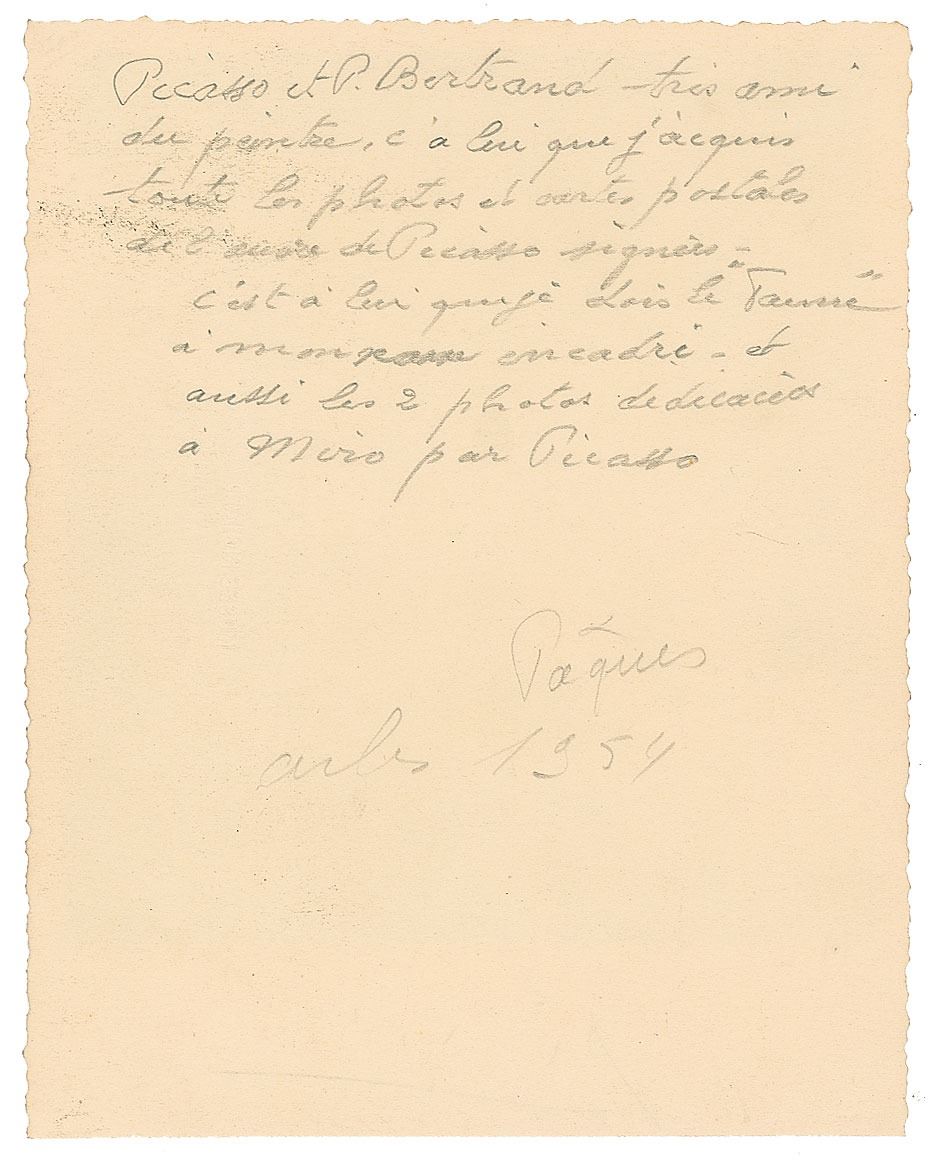 Picasso et P. Bertrand très ami
du peintre, c'a lui que j'acquis
toute les photos et cartes postales
de l'œuvre de Picasso signées -
c'est à lui que je dois le "Faune"
a mon encadré - et
aussi les 2 photos dedicacées
à Miro par Picasso
Pâques
arles 1954